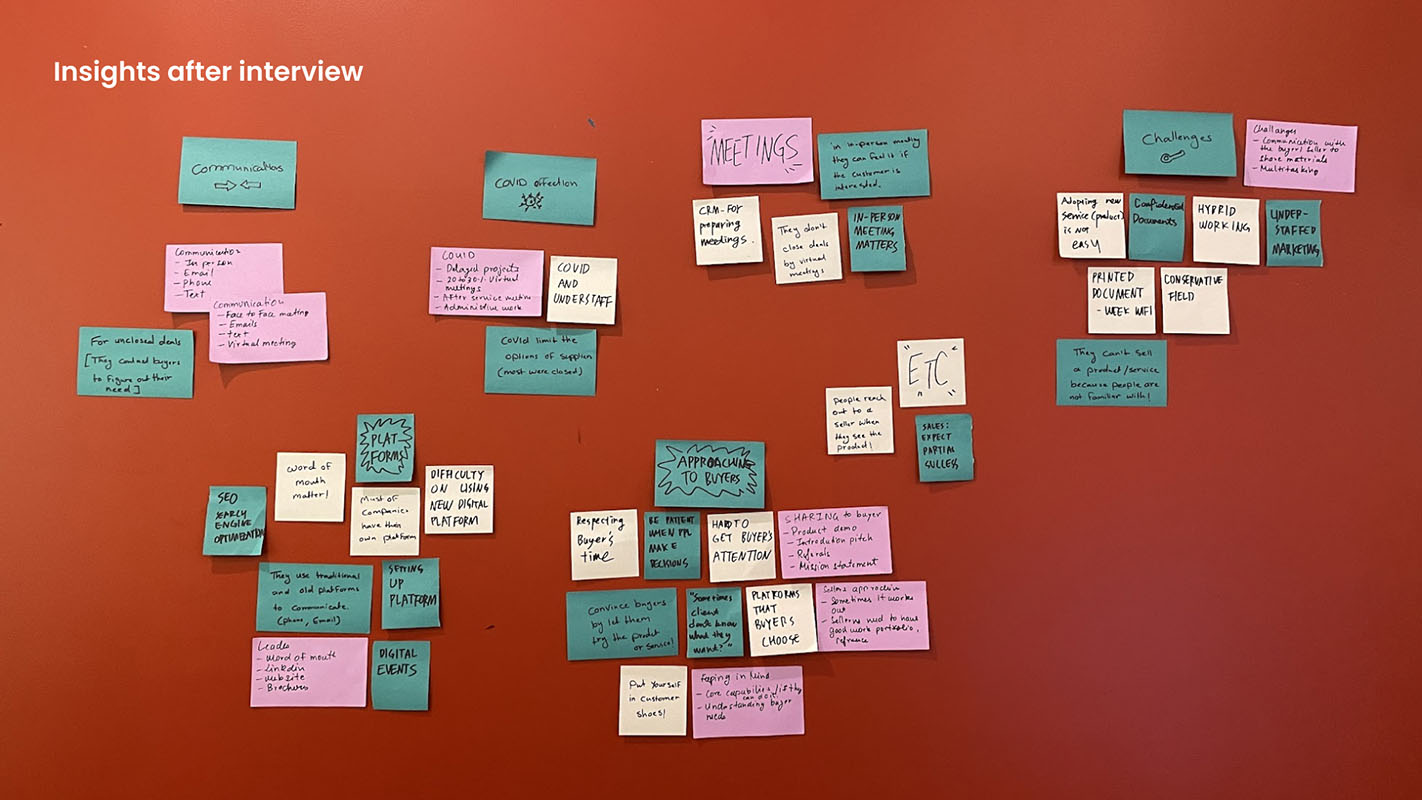 Insights after interview
Communications
Communication
- In person
- Email
- phone
- Text
Communication
- Face to Face mating
- Emails
- text
- Virtual meeting
For unclosed deals
[They contact buyers
to figure out their
need]
COVID affection
COVID
- Delayed projects
- 20 to 30% Virtual
meetings
- After service meeting
- Administive work
COVID
AND
UNDERSTAFF
Covid limit the
options of suppliers
(most were closed)
MEETINGS
In in-person meeting
they can feel it if
the customer is
interested.
CRM-FOR
preparing
meetings.
They don't
close deals
by virtual
meetings
IN-PERSON
MEETING
MATTERS
Challenges
Challanges
- Communication with
the buyer/seller to
share materials
- Multitasking
Adopting new
service (product)
is NOT
easy
Confidential
Documents
HYBRID
WORKING
UNDER-
STAFFED
MARKETING
PRINTED
DOCUMENT
- WEEK WIFI
CONSERVATIVE
FIELD
They can't sell
a product/service
because people are
not familiar with!
"ETC"
people reach
out to a
seller when
they see the
product!
SALES:
EXPECT
PARTIAL
SUCCESS
PLAT-
FORMS
word of
mouth
matter!
SEO
EARLY
ENGINE
OPTIMIZATION
Must of
companies
have their
own platform
DIFFICULTY
ON USING
NEW DIGITAL
PLATFORM
They use traditional
and old platforms
to communicate.
(phone, Email)
SETTING
UP
PLATFORM
Leads
- Word of mouth
- Linkdin
- website
- Brochers
DIGITAL
EVENTS
APPROACHING
TO BUYERS
Respecting
Buyer's
time
BE PATIENT
WHEN PPL
MAKE
DECISIONS
HARD TO
GET BUYER'S
ATTENTION
SHARING to buyer
- Product demo
- Introdution pitch
- Referals
- Mission statement
Convince buyers
by let them
try the product
or service!
"Sometimes
client
don't know
what they
want?"
PLATFORMS
THAT
BUYERS
CHOOSE
Sellers approachin
- Sometimes it works
out
- Sellers need to have
good work portfolio,
refrance
Put yourself
in customer
shoes!
Keping in mind
- Core capabilities/if they
can do it
- Understanding buyer
needs